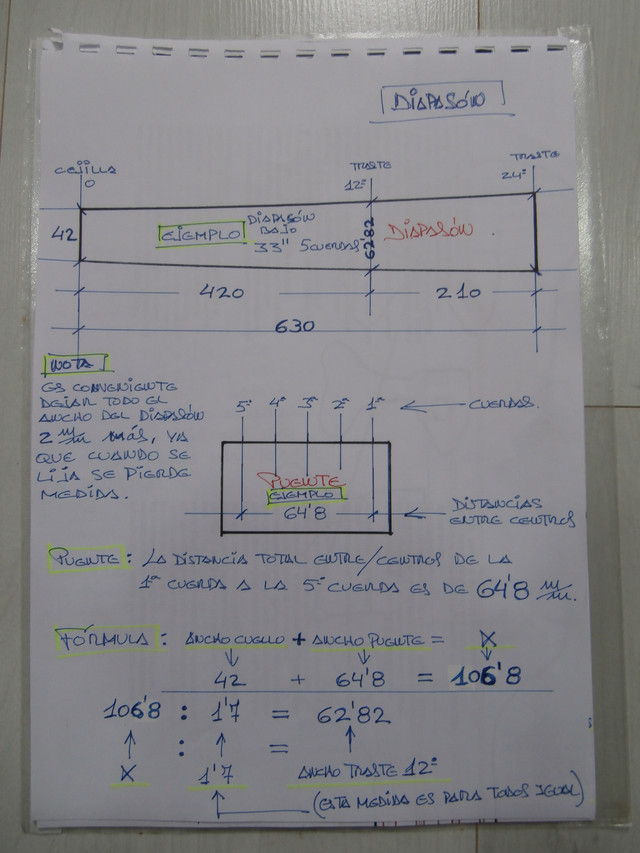 DIAPASÓN
CEJILLA
0
TRASTE
12º
TRASTE
24º
42
EJEMPLO
DIAPASÓN
BAJO
33" 5 CUERDAS
6282
DIAPASÓN.
420
210
630
NOTA
ES CONVENIENTE
DEJAR TODO EL
ANCHO DEL DIAPASÓN
2 m/m más, YA
QUE CUANDO SE
LIJA SE PIERDE
MEDIDA.
5ª 4ª 3ª 2ª 1ª
CUERDAS.
PUENTE
EJEMPLO
64'8
DISTANCIAS
ENTRE CENTROS
PUENTE: LA DISTANCIA TOTAL ENTRE/CENTROS DE LA
1ª CUERDA A LA 5ª CUERDA ES DE 64'8 m/m.
FÓRMULA: ANCHO CUELLO + ANCHO PUENTE = X
42 + 64'8 = 106'8
106'8 : 1'7 = 62'82
: =
X 1'7 ANCHO TRASTE 12º
(ESTA MEDIDA ES PARA TODOS IGUAL)